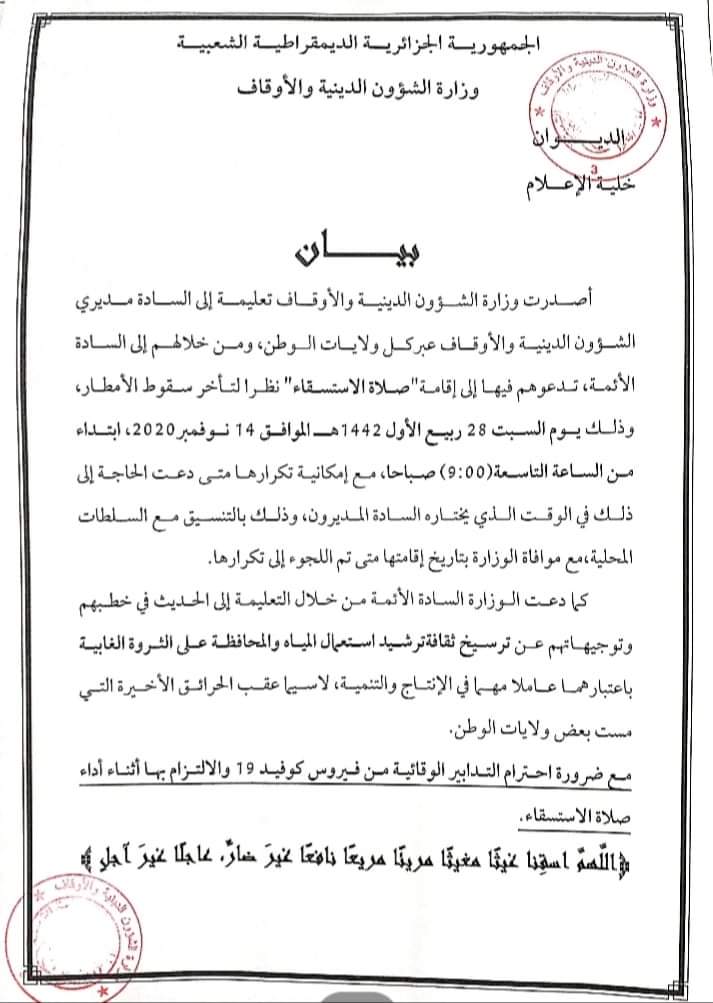 الجمهورية الجزائرية الديمقراطية الشعبية
وزارة الشؤون الدينية والأوقاف
وزارة الشؤون الدينية والأوقاف
الديـــوان
3
خلية الإعلام
بيـــان
أصدرت وزارة الشؤون الدينية والأوقاف تعليمة إلى السادة مديري
الشؤون الدينية والأوقاف عبركل ولايات الوطن، ومن خلالهم إلى السادة
الأئمة، تدعوهم فيها إلى إقامة"صلاة الاستسقاء" نظرا لتأخر سقوط الأمطار،
وذلك يوم السبت 28 ربيع الأول 1442هـ الموافق 14 نوفمبر2020، ابتداء
من الساعة التاسعة(9:00) صباحا، مع إمكانية تكرارها متى دعت الحاجة إلى
ذلك في الوقت الذي يختاره السادة المديرون، وذلك بالتنسيق مع السلطات
المحلية،مع موافاة الوزارة بتاريخ إقامتها متى تم اللجوء إلى تكرارها.
كما دعت الوزارة السادة الأئمة من خلال التعليمة إلى الحديث في خطبهم
وتوجيهاتهم عن ترسيخ ثقافةترشيد استعمال المياه والمحافظة على الثروة الغابية
باعتبارهما عاملا مهما في الإنتاج والتنمية، لاسيما عقب الحرائق الأخيرة التي
مست بعض ولايات الوطن.
مع ضرورة احترام التدابير الوقائية من فيروس كوفيد 19 والالتزام بها أثناء أداء
صلاة الاستسقاء.
﴿اللَّهمَّ اسقِنا غيثًا مغيثًا مريئًا مريعًا نافعًا غيرَ ضارٍّ، عاجلًا غيرَ آجلٍ﴾
الشؤون الدينية والأوقاف